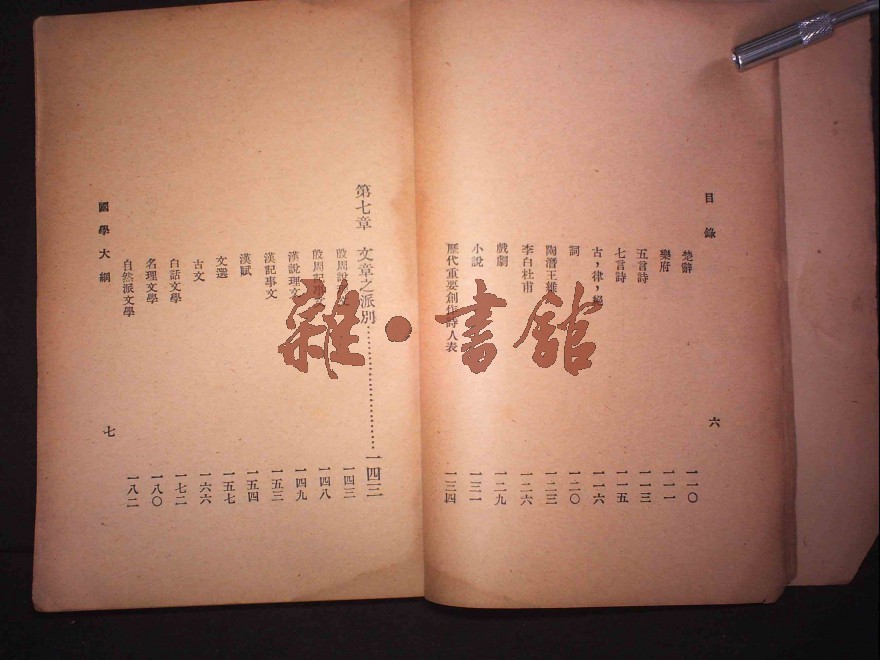 目錄
六
楚辭 一一〇
樂府 一一一
五言詩 一一三
七言詩 一一五
古，律，絕 一一六
詞 一二〇
陶潛王維 一二三
李白杜甫 一二六
戲劇 一二九
小說 一三一
歷代重要創作詩人表 一三四
第七章 文章之派別……………………一四三
殷周說理文 一四三
殷周記事文 一四八
漢說理文 一四九
漢記事文 一五三
漢賦 一五四
文選 一五七
古文 一六六
白話文學 一七二
名理文學 一八〇
自然派文學 一八二
國學大綱
七
雜·書館